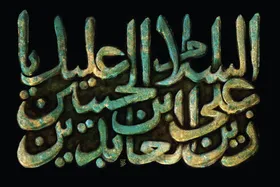 السلام علیک یا
علی ابن الحسین
زین العابدین